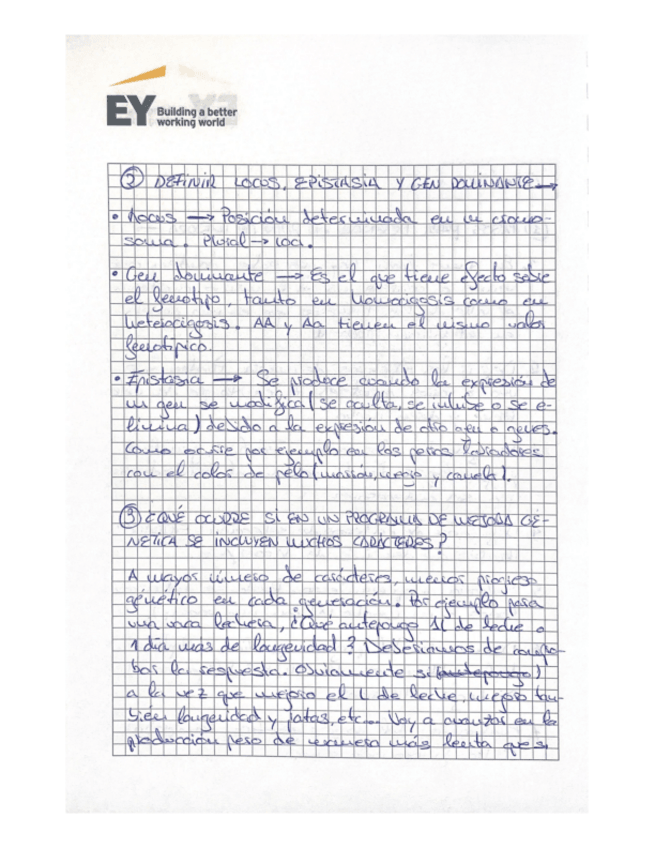 EY Building a better
working world
② DEFINIR LOCUS, EPISTASIA Y GEN DOMINANTE →
• Locus → Posición determinada en un cromo-
soma. Plural → loci.
• Gen dominante → Es el que tiene efecto sobre
el fenotipo, tanto en homocigosis como en
heterocigosis. AA y Aa tienen el mismo valor
fenotípico.
• Epistasia → Se produce cuando la expresión de
un gen se modifica (se oculta, se inhibe o se e-
limina) debido a la expresión de otro gen o genes.
Como ocurre por ejemplo en los perros labradores
con el color de pelo (marrón, negro y canela).
③ ¿QUÉ OCURRE SI EN UN PROGRAMA DE MEJORA GE-
NÉTICA SE INCLUYEN MUCHOS CARACTERES?
A mayor número de carácteres, menos progreso
génético en cada generación. Por ejemplo para
una vaca lechera, ¿Qué antepongo 1L de leche o
1 día más de longevidad? Deberiamos de
la respuesta. Obviamente si (antepongo)
a la vez que mejoro el L de leche, mejoro tam-
bién longevidad y patas, etc... Voy a avanzar en la
producción pero de manera más lenta que si